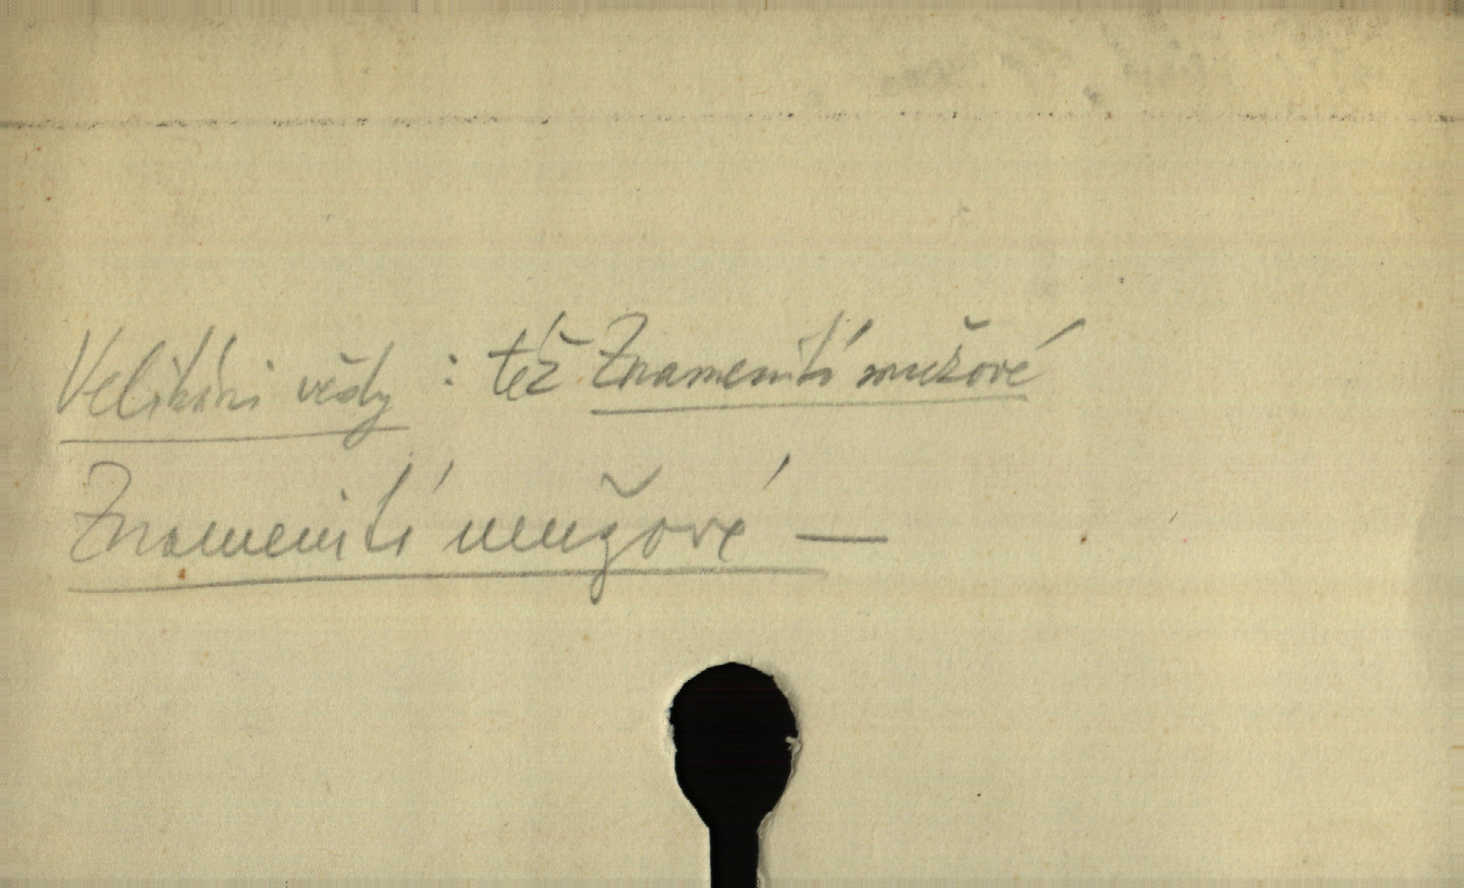 Velikáni vědy : též Znamenití mužové
Znamenití mužové —